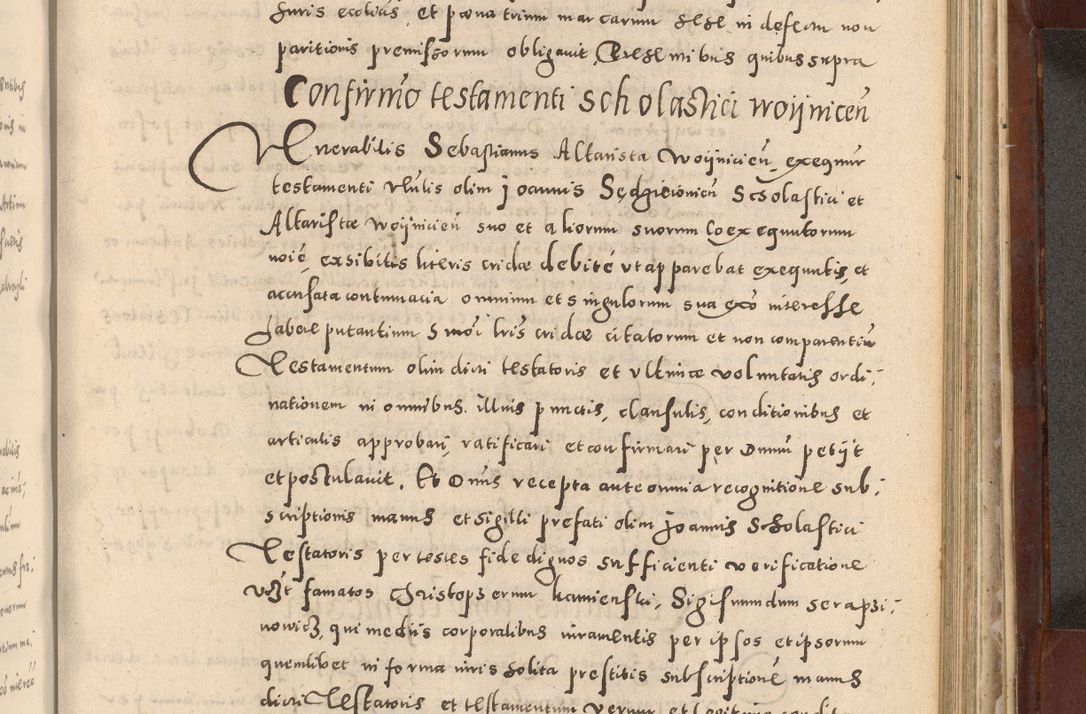 Juris ecclīcis, et pœna trium marcarum sese in defectu non
paritionis premissorum obligauit, Testibus quibus supra
Confirmō testamenti scholastici woijnicen̄
Venerabilis Sebastianus Altarista woijnicien̄, exequur
testamenti Vblis olim Joannis Sędzieiouien̄ Scholastici et
Altaristæ woijnicien̄ suo et aliorum suorum Coexequutorum
noīe, exhibitis literis cridæ debite vt apparebat exequutis, et
accusata contumacia omnium et singulorum sua exō interesse
habere putantium Smōi lrīs cridæ citatorum et non comparentiū
Testamentum olim dicti testatoris et vltimæ voluntatis ordi,
nationem in omnibus illius punctis, clausulis, conditionibus et
articulis approbari, ratificari et confirmari per Dnum petijt
et postulauit. Et Dnūs recepta ante omnia recognitione sub,
scriptionis manus et sigilli prefati olim Joannis Scholastici
Testatoris per testes fide dignos sufficienti verificatione
vzt famatos Christopherum kamienski, Sigismundum seraphi,
nowicz, qui mediis corporalibus iuramentis per ipsos et ipsorum
quemlibet in forma iuris solita prestitis subscriptione manus
dicti Testatoris et testamentum verum et legitime condit